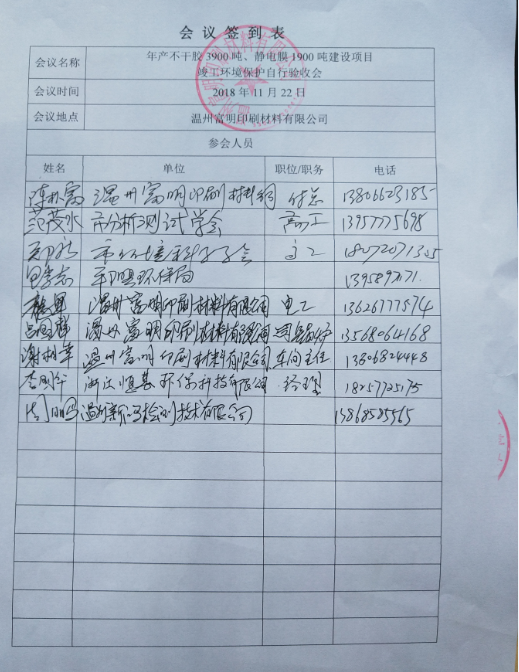 会议签到表
会议名称 年产不干胶3900吨、静电膜1900吨建设项目
竣工环境保护自行验收会
会议时间 2018年11月22日
会议地点 温州富明印刷材料有限公司
参会人员
姓名 单位 职位/职务 电话
温州富明印刷材料 13806623185
范茂水 市分析测试学会 高工 13957775698
市环境科学学会 18072071325
环保局
温州富明印刷材料有限公司 电工 13626777574
温州富明印刷材料有限公司 司炉 13568064168
谢 温州富明印刷材料有限公司 车间主任 13806824448
李 浙江 环保科技有限公司 经理 18257725175
周 温州新 检测技术有限公司 13868585565